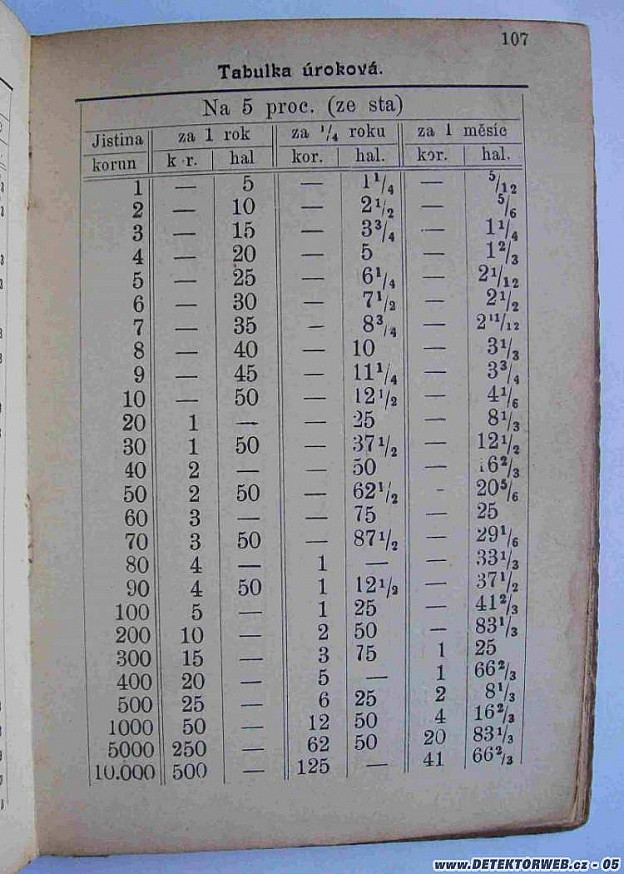 107
Tabulka úroková.
Na 5 proc. (ze sta)
Jistina za 1 rok za 1/4 roku za 1 měsíc
korun k r. hal kor. hal. kor. hal.
1 — 5 — 1 1/4 — 5/12
2 — 10 — 2 1/2 — 5/6
3 — 15 — 3 3/4 — 1 1/4
4 — 20 — 5 — 1 2/3
5 — 25 — 6 1/4 — 2 1/12
6 — 30 — 7 1/2 — 2 1/2
7 — 35 — 8 3/4 — 2 11/12
8 — 40 — 10 — 3 1/3
9 — 45 — 11 1/4 — 3 3/4
10 — 50 — 12 1/2 — 4 1/6
20 1 — — 25 — 8 1/3
30 1 50 — 37 1/2 — 12 1/2
40 2 — — 50 — 16 2/3
50 2 50 — 62 1/2 - 20 5/6
60 3 — — 75 — 25
70 3 50 — 87 1/2 — 29 1/6
80 4 — 1 — — 33 1/3
90 4 50 1 12 1/2 — 37 1/2
100 5 — 1 25 — 41 2/3
200 10 — 2 50 — 83 1/3
300 15 — 3 75 1 25
400 20 — 5 — 1 66 2/3
500 25 — 6 25 2 8 1/3
1000 50 — 12 50 4 16 2/3
5000 250 — 62 50 20 83 1/3
10.000 500 — 125 — 41 66 2/3
www.DETEKTORWEB.cz - 05